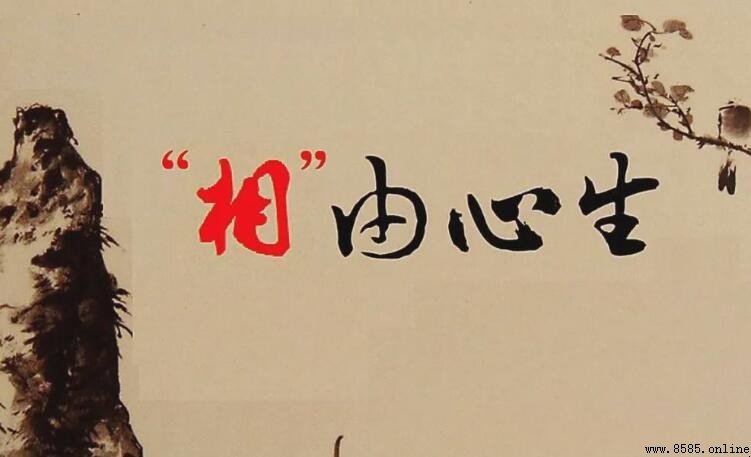 “相”由心生
www.8585.online